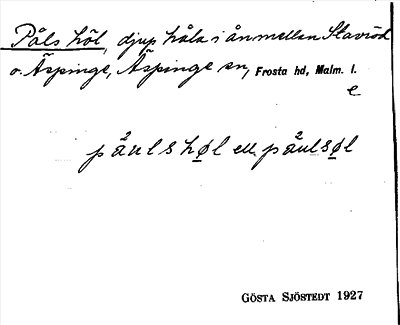 Påls höl, djup håla i ån mellan Stavröd
o. Äspinge, Äspinge sn, Frosta hd, Malm. l.
e
på²uls høl ell. på²ulsøl
GÖSTA SJÖSTEDT 1927